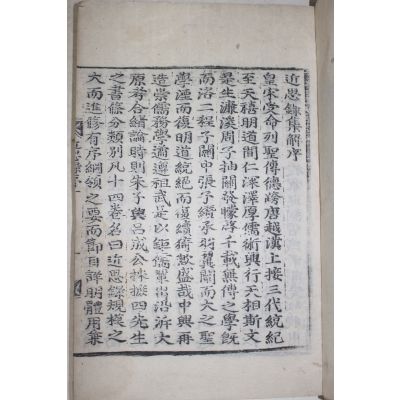 近思錄集解序
皇宋受命列聖傳德跨唐越漢上接三代統紀
至天禧明道間仁深澤厚儒術興行天相斯文
是生濂溪周子抽關發矇啓千載無傳之學既
而洛二程子關中張子纘承羽翼闡而大之聖
學湮而復明道統絕而復續猗歟盛哉中興再
造崇儒務學遹遵祖武是以鉅儒輩出沿泝大
原考合緒論時則朱子與呂成公採摭四先生
之書條分類別凡十四卷名曰近思錄規模之
大而進修有序綱領之要而節目詳明體用兼